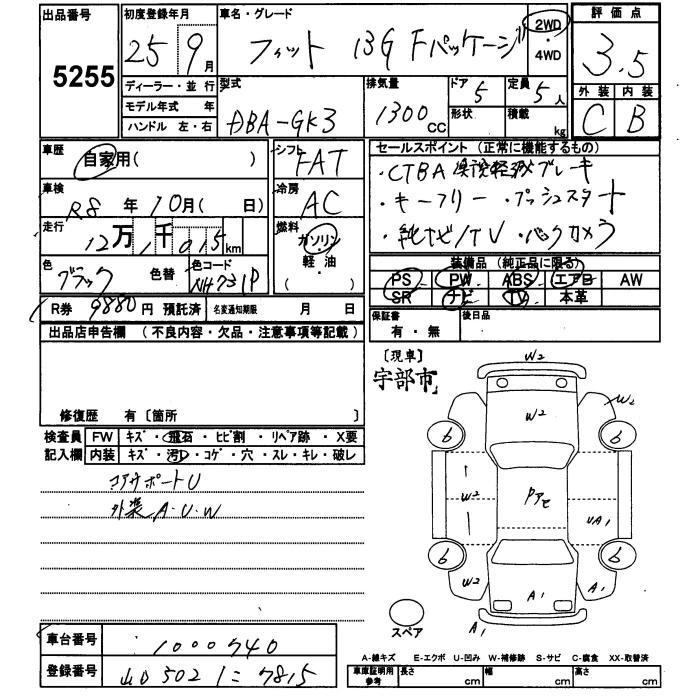 出品番号 5255
初度登録年月 25年 9月
車名・グレード フィット 13G Fパッケージ
2WD・4WD
評価点 3.5
外装 C 内装 B
ディーラー・並行
モデル年式 年
ハンドル 左・右
型式 DBA-GK3
排気量 1300cc
ドア 5 形状
定員 5人
積載 kg
車歴 自家用( )
シフト FAT
車検 R8年10月( 日)
冷房 AC
走行 12万1千015km
燃料 ガソリン・軽・油 ( )
色 ブラック 色替
色コード NH731P
R券 9880円 預託済
名変通知期限 月 日
セールスポイント (正常に機能するもの)
・CTBA 軽減ブレーキ
・キーフリー・プッシュスタート
・純ナビ/TV・バックカメラ
装備品 (純正品に限る)
PS PW ABS エアB AW
SR ナビ TV 本革
保証書 有・無
後日品
出品店申告欄 (不良内容・欠品・注意事項等記載)
修復歴 有〔箇所 〕
検査員記入欄 FW キズ・飛石・ヒビ割・リペア跡・X要
内装 キズ・汚レ・コゲ・穴・スレ・キレ・破レ
コアサポートU
外装 A・U・W
〔現車〕
宇部市
W2
W2
W2
6
6
W2
Pアセ
UA1
6
6
W2
A1
A1
A1
スペア
車台番号 1000740
登録番号 山口 502 に 7815
A-線キズ E-エクボ U-凹み W-補修跡 S-サビ C-腐食 XX-取替済
車庫証明用参考 長さ cm 幅 cm 高さ cm